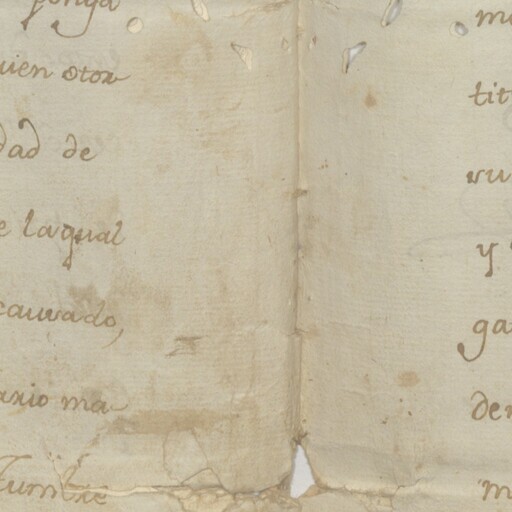 ponga
uien otor
dad de
e la qual
caurado,
ario ma
m
tit
vu
y
ga
de
m